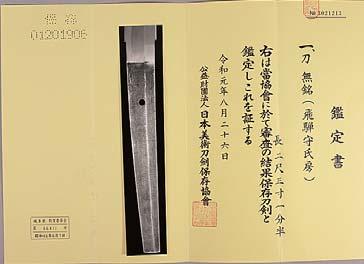 鑑定書
一、刀 無銘(飛騨守氏房)
長 二尺三寸一分半
右は當協會に於て審査の結果保存刀剣と
鑑定しこれを証する
令和元年八月二十六日
公益財團法人 日本美術刀劍保存協會
№ 3021213
保存
01201906